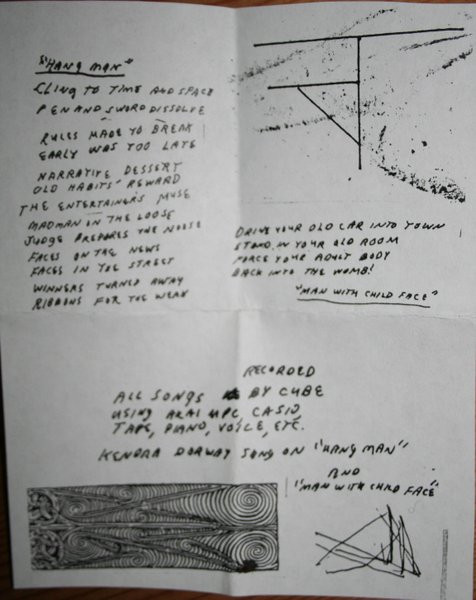 "HANG MAN"
CLING TO TIME AND SPACE
PEN AND SWORD DISSOLVE
RULES MADE TO BREAK
EARLY WAS TOO LATE
NARRATIVE DESSERT
OLD HABITS' REWARD
THE ENTERTAINER'S MUSE
MADMAN ON THE LOOSE
JUDGE PREPARES THE NOOSE
FACES ON THE NEWS
FACES IN THE STREET
WINNERS TURNED AWAY
RIBBONS FOR THE WEAK
DRIVE YOUR OLD CAR INTO TOWN
STAND IN YOUR OLD ROOM
FORCE YOUR ADULT BODY
BACK INTO THE WOMB!
"MAN WITH CHILD FACE"
RECORDED
ALL SONGS BY CUBE
USING AKAI MPC, CASIO,
TAPE, PIANO, VOICE, ETC.
KENDRA DORWAY SONG ON "HANG MAN"
AND
"MAN WITH CHILD FACE"